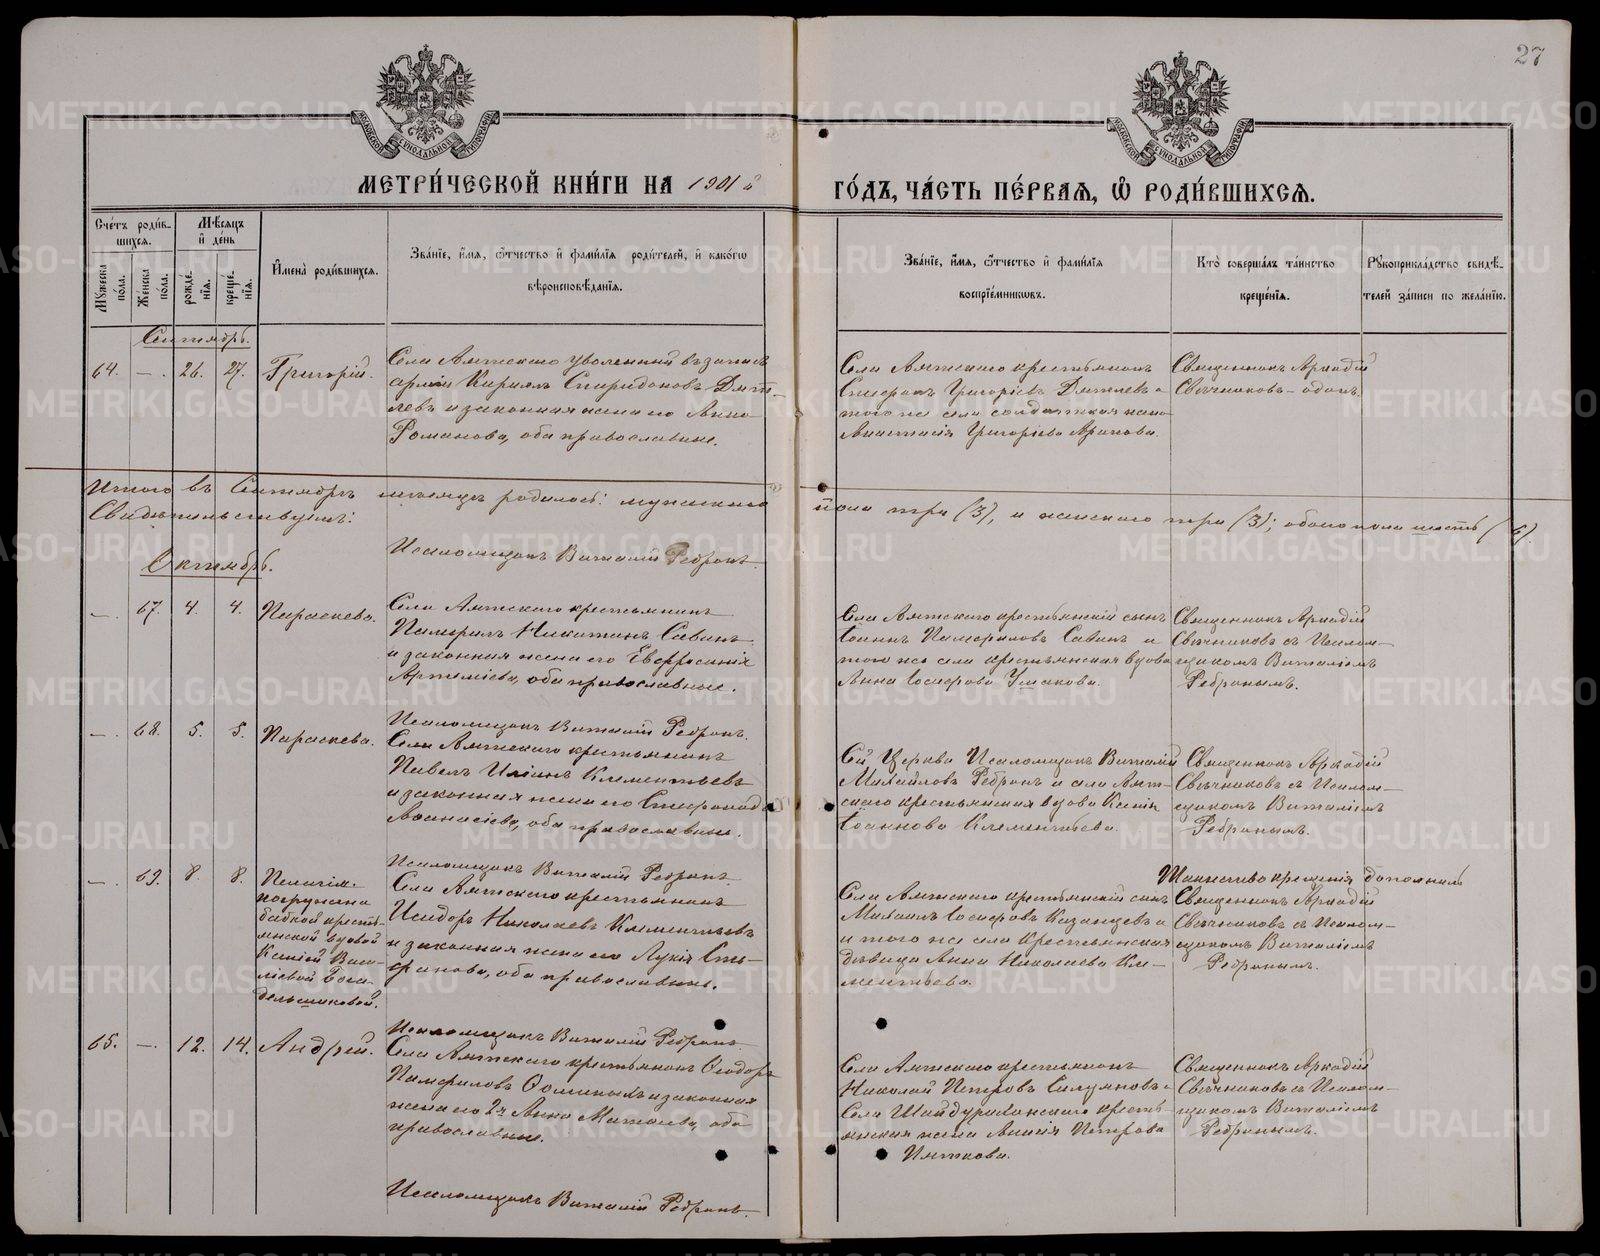 27
МЕТРИ́ЧЕСКОЙ КНИ́ГИ НА 1901 й
ГО́ДЪ, ЧА́СТЬ ПЕ́РВАЯ, Ѽ РОДИ́ВШИХСЯ.
Сче́тъ роди́в-
шихся.
Мꙋжеска по́ла.
Же́нска по́ла.
Мѣ́сяцъ и де́нь
рожде́-нїя.
креще́-нїя.
И҆мена̀ роди́вшихся.
Зва́нїе, и҆́мя, ѻ҆́тчество и҆ фами́лїя роди́телей, и҆ како́гѡ
вѣроисповѣ́данїя.
Зва́нїе, и҆́мя, ѻ҆́тчество и҆ фами́лїя
воспрїе́мниковъ.
Кто̀ соверша́лъ та́инство
креще́нїя.
Рꙋкоприкла́дство свидѣ́-
телей за́писи по жела́нїю.
Сентябрь.
64. — 26. 27. Григорій.
Села Аятскаго уволенный въ запасъ
арміи Кириллъ Спиридоновъ Дят-
левъ и законная жена его Анна
Романова, оба православные.
Села Аятскаго крестьянинъ
Григорьевъ Дятлевъ и
того же села солдатская жена
Анастасія Григорьева
Священникъ Аркадій
Свѣчниковъ – одинъ.
Итого въ Сентябрѣ мѣсяцѣ родилось: мужескаго
пола три (3), и женскаго три (3); обоего пола шесть (6).
Свидѣтельствуемъ:
Октябрь.
Псаломщикъ Виталій Ребринъ.
—. 67. 4. 4. Параскева.
Села Аятскаго крестьянинъ
Памфилъ Никитинъ Савинъ
и законная жена его Евфросинія
Артеміева, оба православные.
Села Аятскаго крестьянскій сынъ
Іоаннъ Памфиловъ Савинъ и
того же села крестьянская вдова
Анна Іосифова Ушакова.
Священникъ Аркадій
Свѣчниковъ съ Псалом-
щикомъ Виталіемъ
Ребринымъ.
Псаломщикъ Виталій Ребринъ.
—. 68. 5. 5. Параскева.
Села Аятскаго крестьянинъ
Павелъ Ильинъ Клементьевъ
и законная жена его Стефанида
Аѳанасіева, оба православные.
Сей Церкви Псаломщикъ Виталій
Михайловъ Ребринъ и села Аят-
скаго крестьянская вдова Ксенія
Іоаннова Клементьева.
Священникъ Аркадій
Свѣчниковъ съ Псалом-
щикомъ Виталіемъ
Ребринымъ.
Псаломщикъ Виталій Ребринъ.
—. 69. 8. 8. Пелагія.
погружена
бабкой кресть-
янской вдовой
Ксеніей Васи-
лісвой Бога-
дельщиковой.
Села Аятскаго крестьянинъ
Исидоръ Николаевъ Клементьевъ
и законная жена его Лукія Сте-
фанова, оба православные.
Села Аятскаго крестьянскій сынъ
Михаилъ Іосифовъ Казанцевъ и
и того же села крестьянская
дѣвица Анна Николаева Кле-
ментьева.
Таинство крещенія дополнилъ
Священникъ Аркадій
Свѣчниковъ съ Псалом-
щикомъ Виталіемъ
Ребринымъ.
Псаломщикъ Виталій Ребринъ.
65. — 12. 14. Андрей.
Села Аятскаго крестьянинъ Ѳеодоръ
Памфиловъ Ѳоминыхъ и законная
жена его 2я Анна Матѳіева, оба
православные.
Села Аятскаго крестьянинъ
Николай Петровъ и
Села Шайдурихинскаго кресть-
янская жена Петрова
Пяткова.
Священникъ Аркадій
Свѣчниковъ съ Псалом-
щикомъ Виталіемъ
Ребринымъ.
Псаломщикъ Виталій Ребринъ.
METRIKI.GASO-URAL.RU